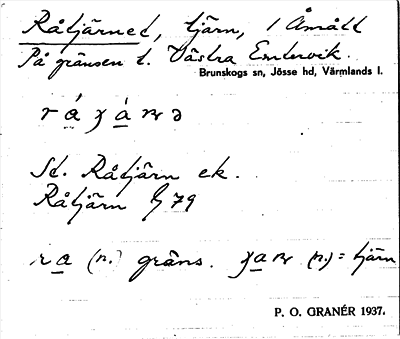 Råtjärnet, tjärn, i Åmått
På gränsen t. Västra Emtervik.
Brunskogs sn, Jösse hd, Värmlands l.
St. Råtjärn ek.
Råtjärn G 79
(n.) gräns. (n.) = tjärn
P. O. GRANÉR 1937.